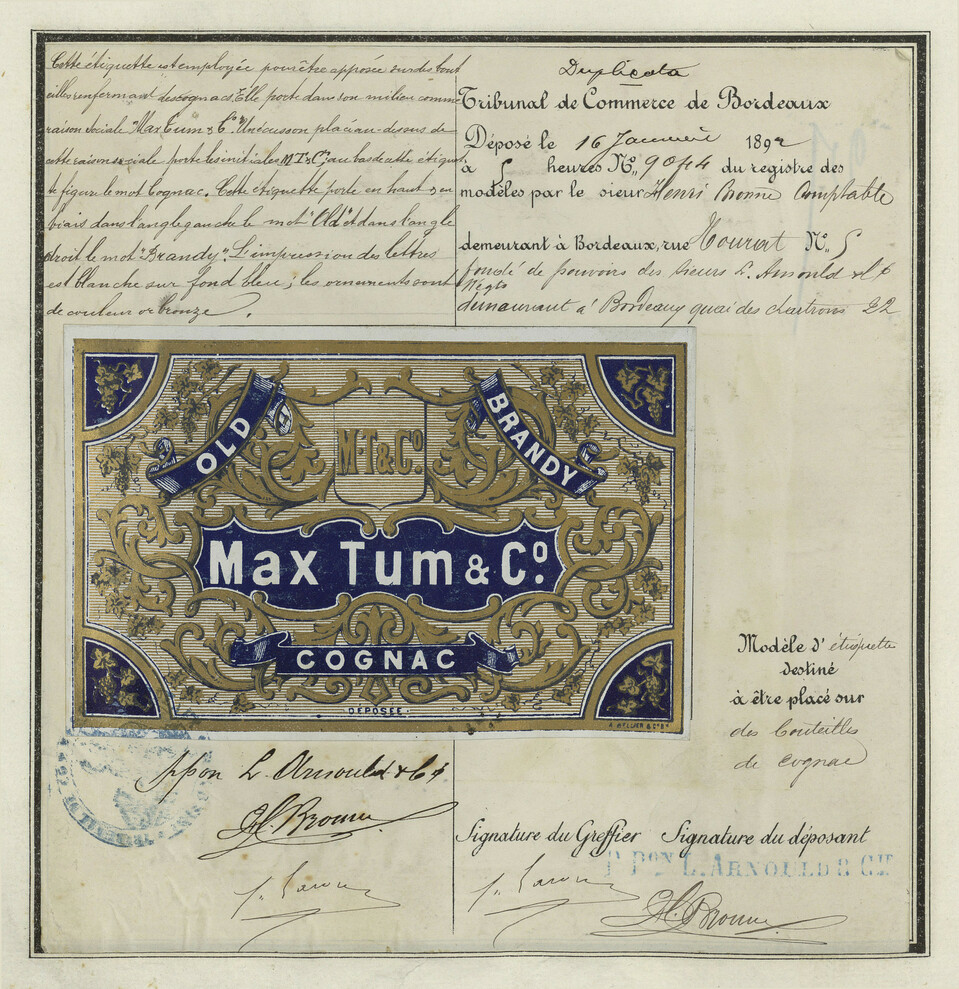 Cette étiquette est employée pour être apposée sur des bout
eilles renfermant des cognacs. Elle porte dans son milieu comme
raison sociale "Max Tum & Cº." Un écusson placé au-dessus de
cette raison sociale porte les initiales M T & Cº; au bas de cette étiquet
te figure le mot Cognac. Cette étiquette porte en haut & en
biais dans l'angle gauche le mot "Old" et dans l'angle
droit le mot "Brandy". L'impression des lettres
est blanche sur fond bleu; les ornements sont
de couleur or bronze.
Duplicata
Tribunal de Commerce de Bordeaux
Déposé le 16 Janvier 1892
à 5 heures Nº 9044 du registre des
modèles par le sieur Henri Bronne Comptable
demeurant à Bordeaux, rue Nº 5
fondé de pouvoirs des sieurs L. Arnould & Cº
Négts
demeurant à Bordeaux quai des chartrons 22
OLD
BRANDY
M·T & Cº.
Max Tum & Cº.
COGNAC
DÉPOSÉE
Modèle d'étiquette
destiné
à être placé sur
des bouteilles
de cognac
Ppon L. Arnould & Cº
H. Bronne
Signature du Greffier Signature du déposant
P. PON L. ARNOULD & CIE
H. Bronne